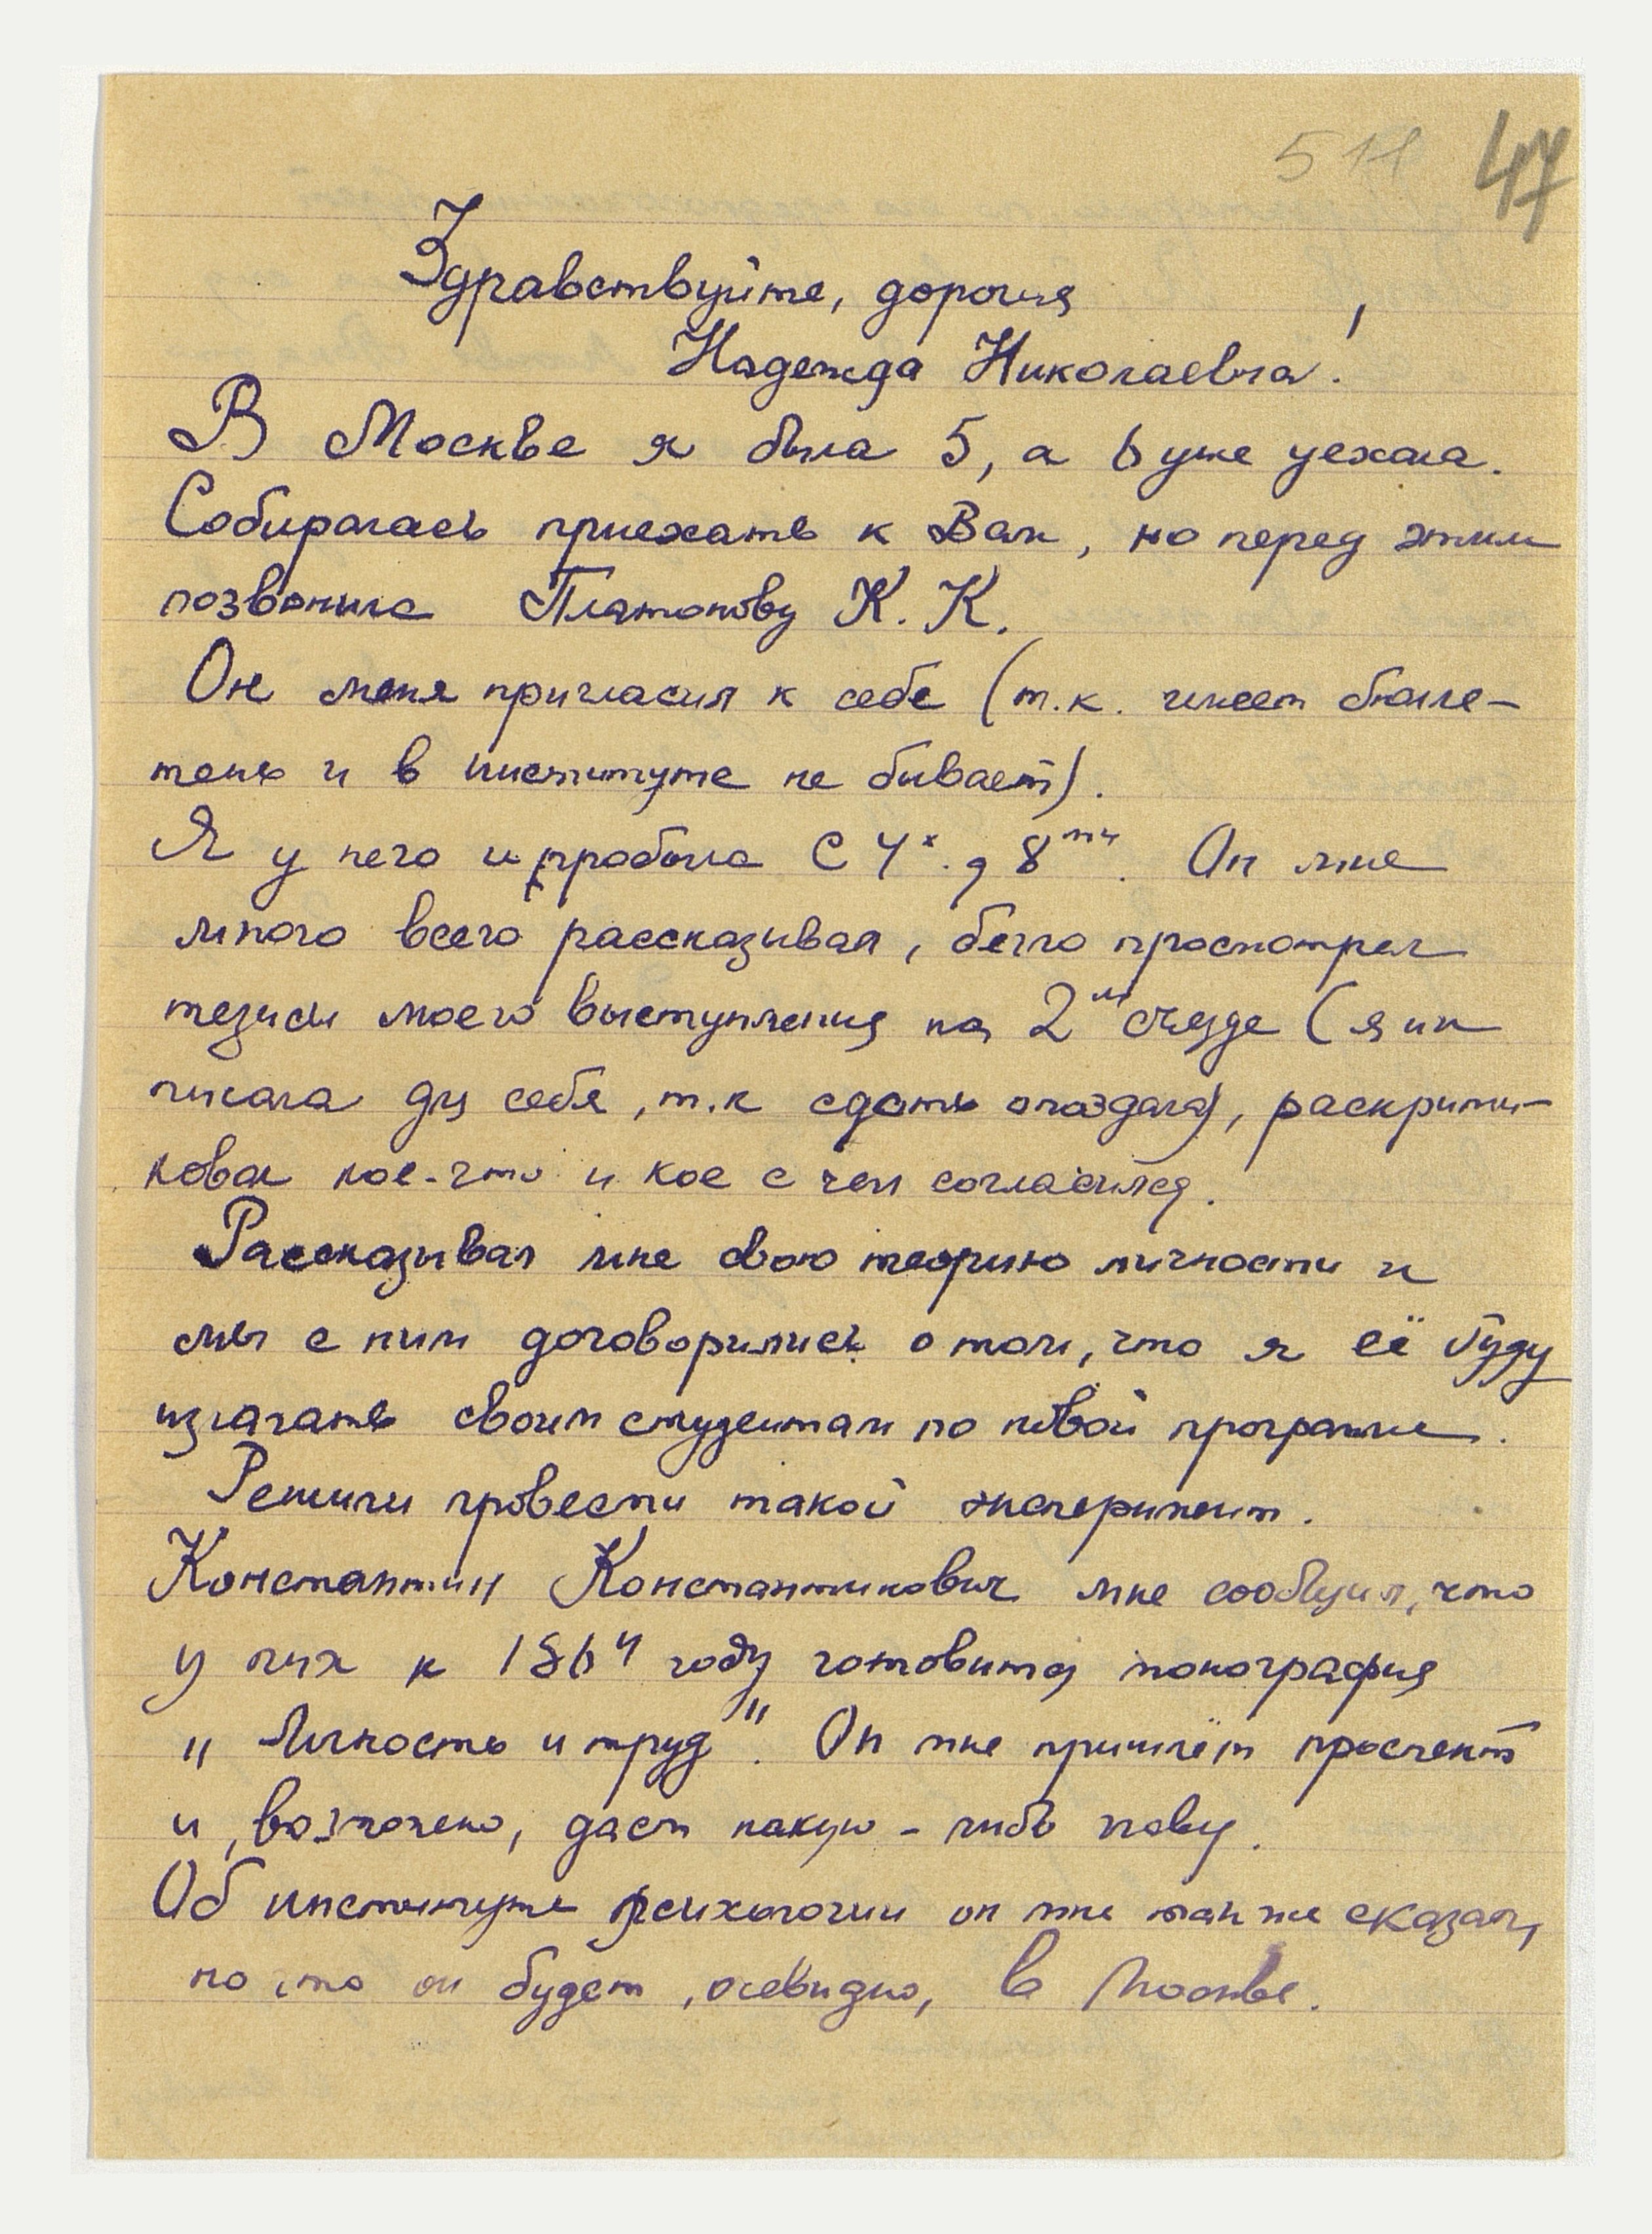 511 47
Здравствуйте, дорогая
Надежда Николаевна!
В Москве я была 5, а 6 уже уехала.
Собиралась приехать к Вам, но перед этим
позвонила Платонову К. К.
Он меня пригласил к себе (т.к. имеет бюлле-
тень и в институте не бывает).
Я у него и пробыла с 4х д 8ми. Он мне
много всего рассказывал, бегло просмотрел
тезисы моего выступления на 2м съезде (я их
писала для себя, т.к сдать опоздала), раскрити-
ковал кое-что и кое с чем согласился.
Рассказывал мне свою теорию личности и
мы с ним договорились о том, что я её буду
излагать своим студентам по новой программе.
Решили провести такой эксперимент.
Константин Константинович мне сообщил, что
у них к 1964 году готовится монография
„Личность и труд". Он мне пришлёт проспект
и, возможно, даст какую-либо главу.
Об институте психологии он мне также сказал,
но что он будет, очевидно, в Москве.